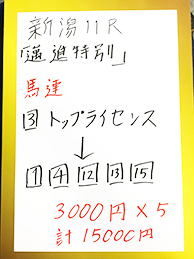 新潟11R
「邁進特別」
馬連
3 トップライセンス
↓
1 4 12 13 15
3000円×5
計15000円